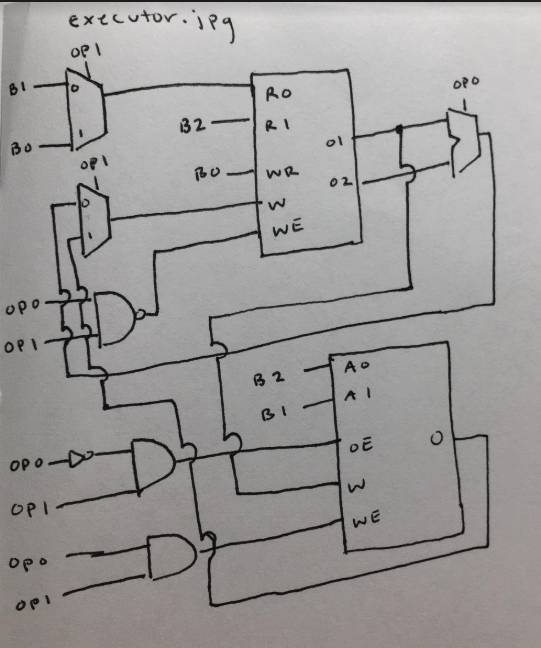 executor.jpg
OP1
B1
0
1
B0
OP1
0
1
R0
B2
R1
B0
WR
W
WE
O1
O2
OP0
OP0
OP1
B2
A0
B1
A1
OE
W
WE
O
OP0
OP1
OP0
OP1